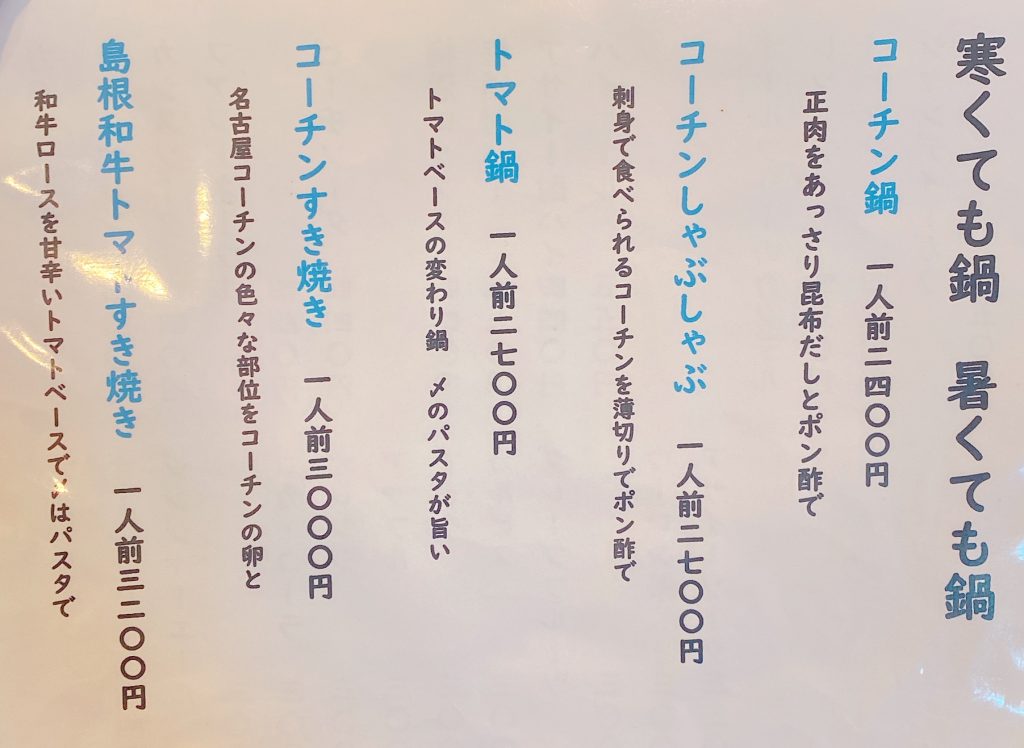 寒くても鍋　暑くても鍋
コーチン鍋　一人前二四〇〇円
正肉をあっさり昆布だしとポン酢で
コーチンしゃぶしゃぶ　一人前二七〇〇円
刺身で食べられるコーチンを薄切りでポン酢で
トマト鍋　一人前二七〇〇円
トマトベースの変わり鍋　〆のパスタが旨い
コーチンすき焼き　一人前三〇〇〇円
名古屋コーチンの色々な部位をコーチンの卵と
島根和牛トマトすき焼き　一人前三二〇〇円
和牛ロースを甘辛いトマトベースで〆はパスタで